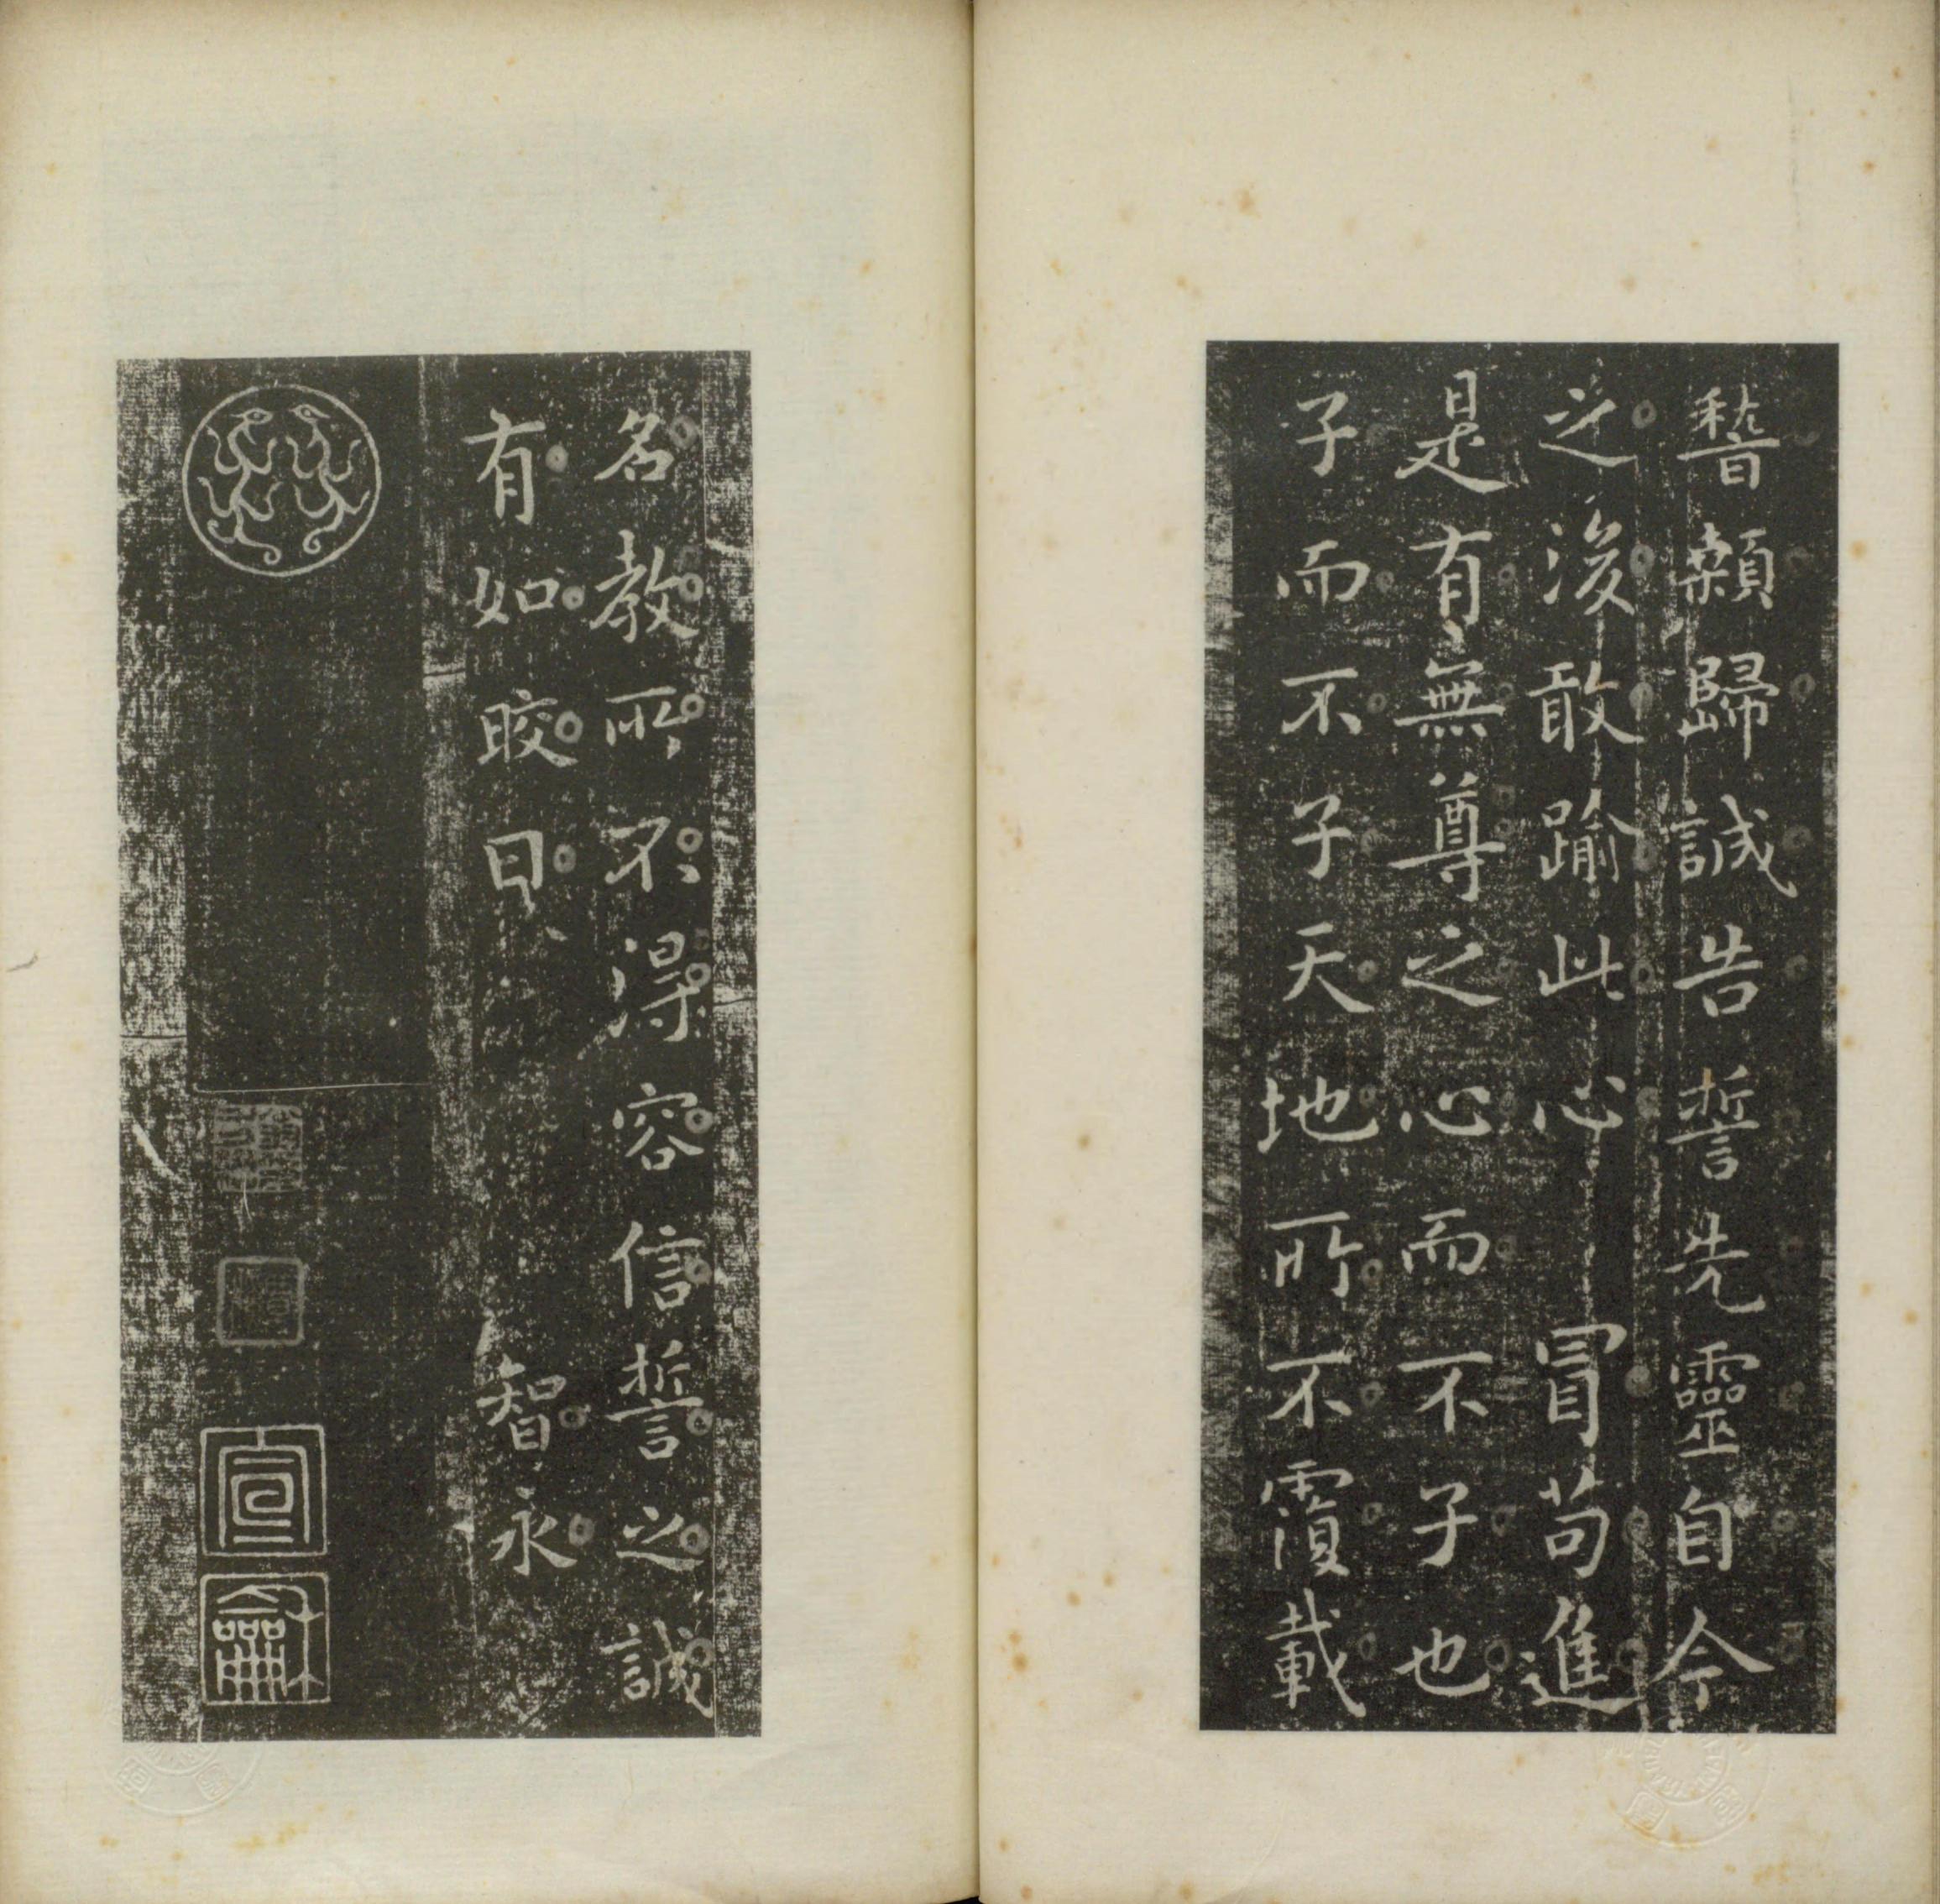 稽顙歸誠告誓先靈自今
之後敢踰此心冒苟進
是有無尊之心而不子也
子而不子天地所不覆載
名教所不得容信誓之誠
有如皎日 智永
宣
龢